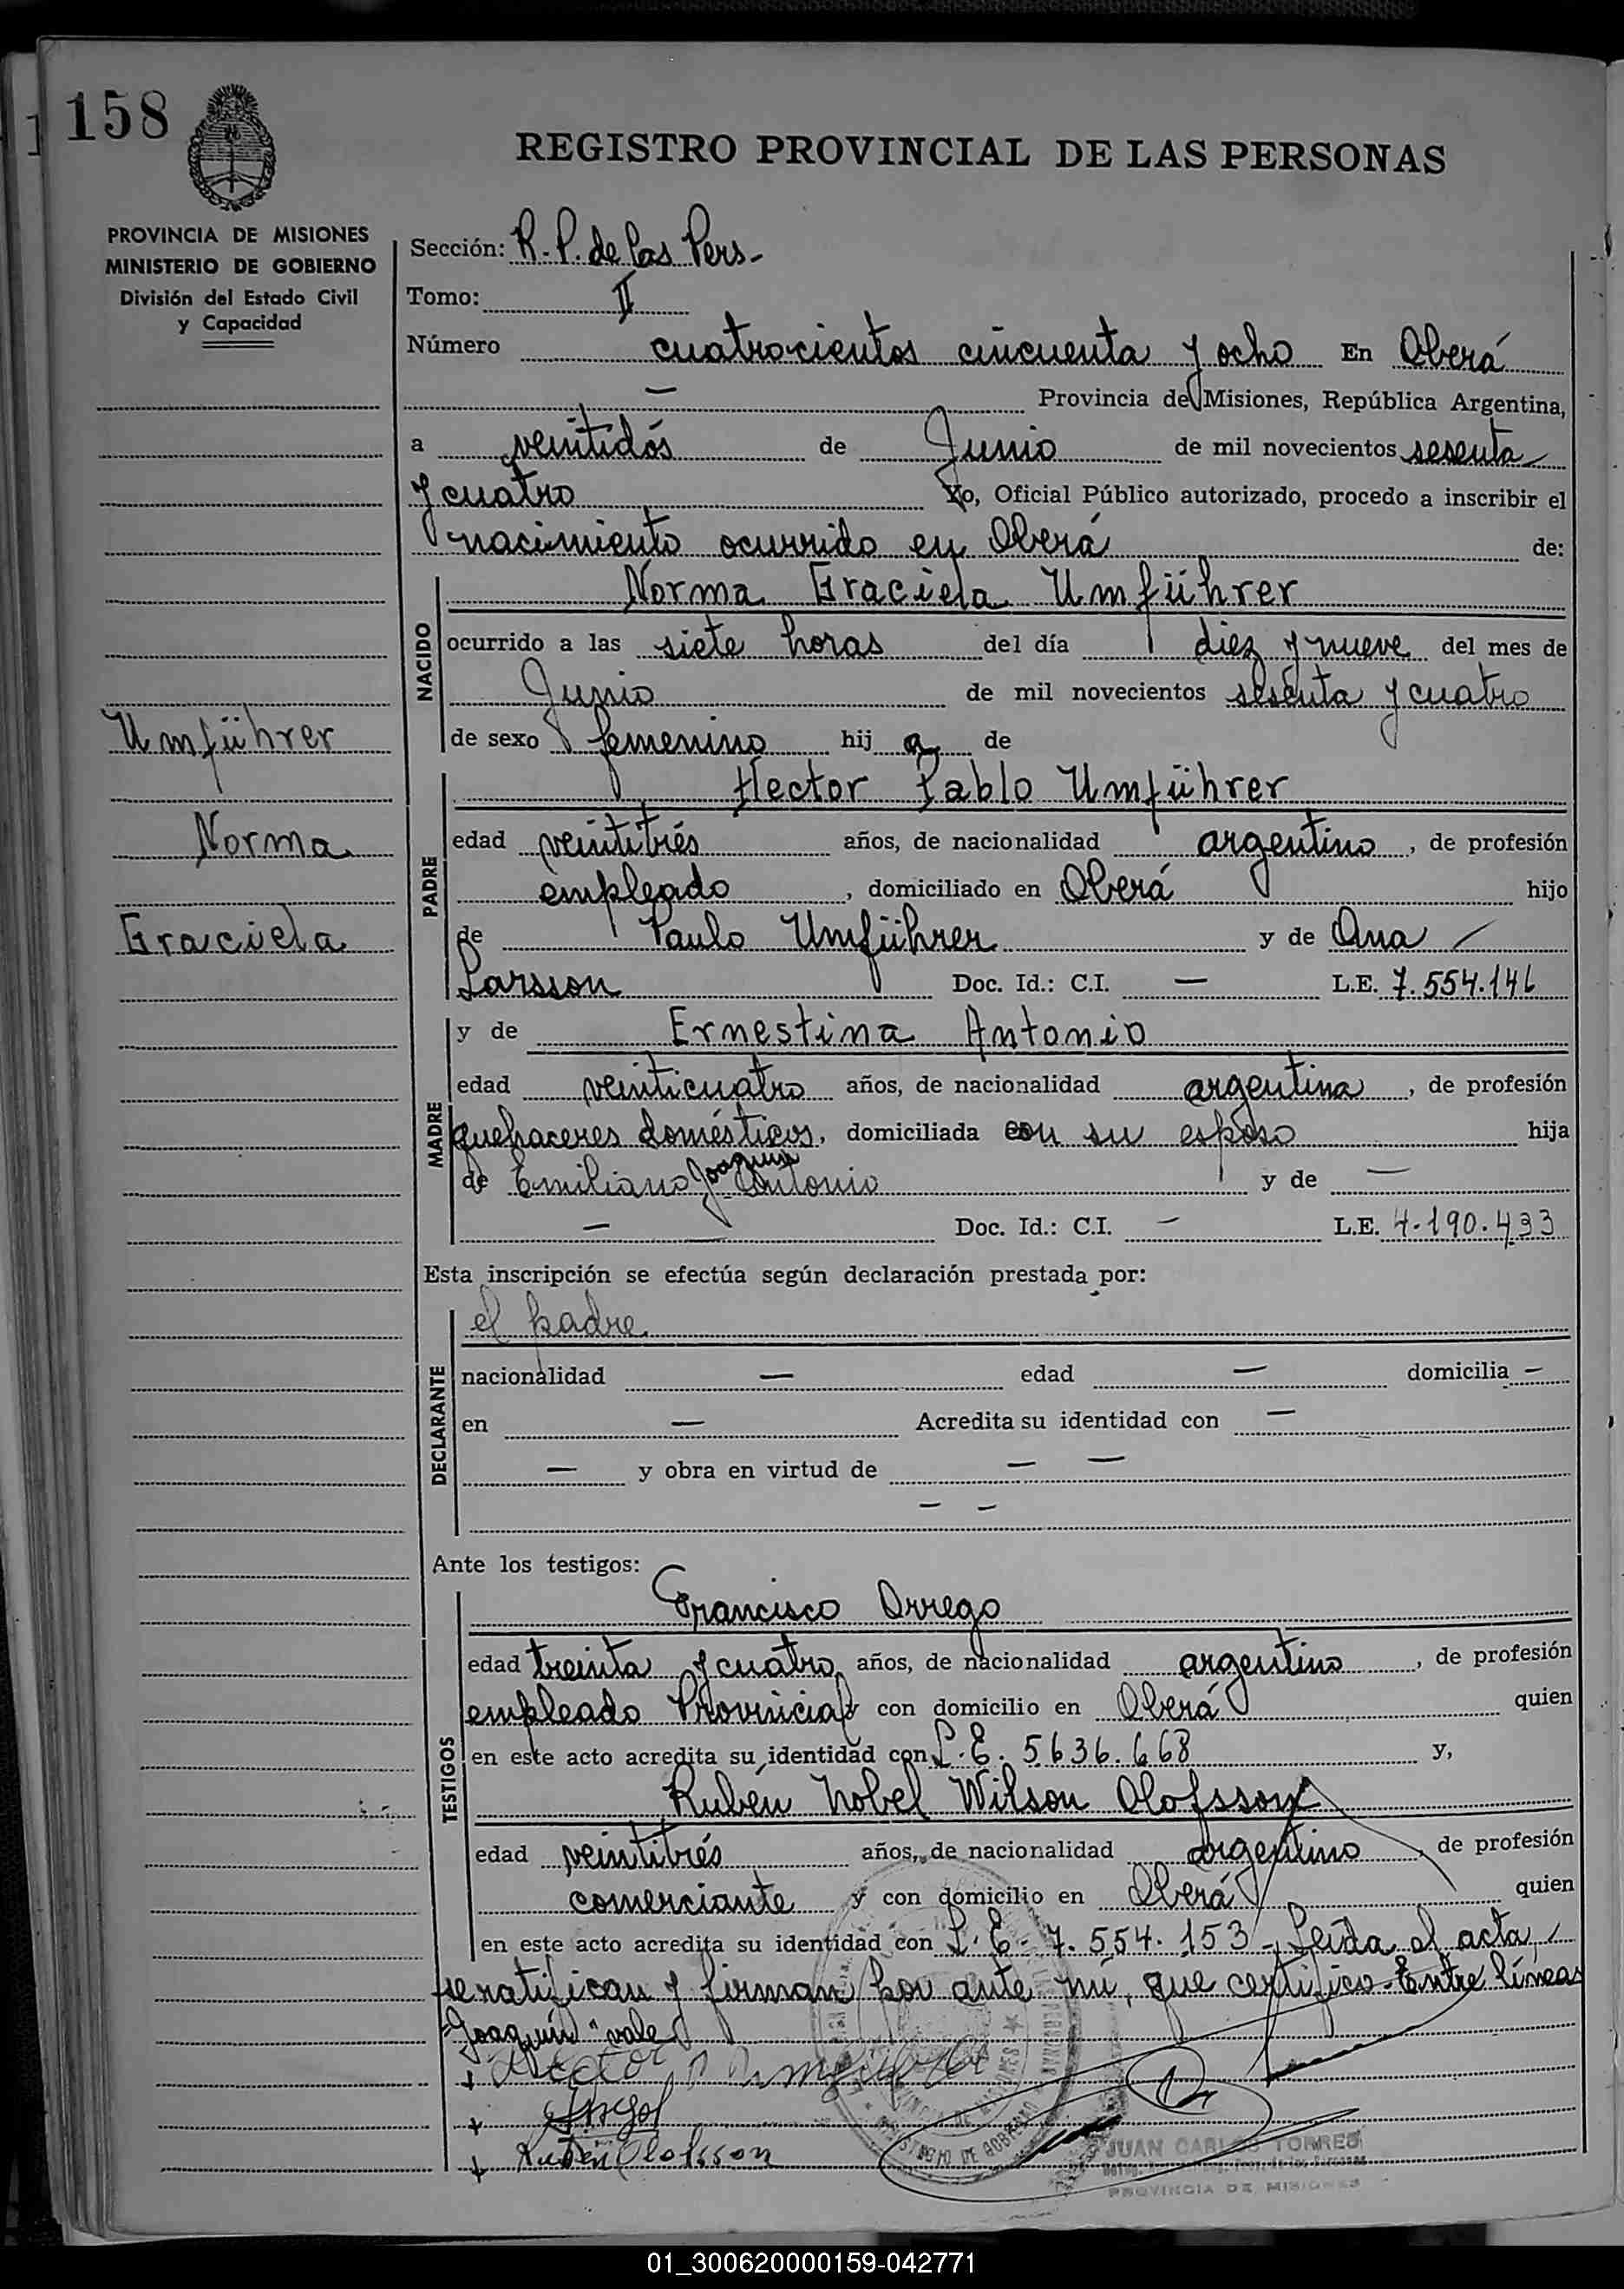 158
REGISTRO PROVINCIAL DE LAS PERSONAS
PROVINCIA DE MISIONES
MINISTERIO DE GOBIERNO
División del Estado Civil
y Capacidad
Sección: R. P. de las Pers.
Tomo: II
Número cuatrocientos cincuenta y ocho En Oberá
— Provincia de Misiones, República Argentina,
a veintidós de Junio de mil novecientos sesenta
y cuatro Yo, Oficial Público autorizado, procedo a inscribir el
nacimiento ocurrido en Oberá de:
NACIDO
Norma Graciela Umführer
ocurrido a las siete horas del día diez y nueve del mes de
Junio de mil novecientos sesenta y cuatro
de sexo femenino hij a de
Umführer
Norma
Graciela
PADRE
Hector Pablo Umführer
edad veintitrés años, de nacionalidad argentino, de profesión
empleado, domiciliado en Oberá hijo
de Paulo Umführer y de Ana
Larsson Doc. Id.: C.I. — L.E. 7.554.146
MADRE
y de Ernestina Antonio
edad veinticuatro años, de nacionalidad argentina, de profesión
quehaceres domésticos, domiciliada con su esposo hija
de Emiliano Joaquin Antonio y de —
— Doc. Id.: C.I. — L.E. 4.190.433
Esta inscripción se efectúa según declaración prestada por:
DECLARANTE
el padre
nacionalidad — edad — domicilia —
en — Acredita su identidad con —
— y obra en virtud de — —
— —
Ante los testigos:
TESTIGOS
Francisco Orrego
edad treinta y cuatro años, de nacionalidad argentino, de profesión
empleado Provincial y con domicilio en Oberá quien
en este acto acredita su identidad con L.E. 5636.668 y,
Rubén Nobel Wilson Olofsson
edad veintitrés años, de nacionalidad argentino, de profesión
comerciante y con domicilio en Oberá quien
en este acto acredita su identidad con L.E. 7.554.153 - Leída el acta,
se ratifican y firman por ante mí, que certifico - Entre líneas
"Joaquin" vale
Hector P Umführer
Rubén Olofsson
JUAN CARLOS TORRES
PROVINCIA DE MISIONES
01_300620000159-042771